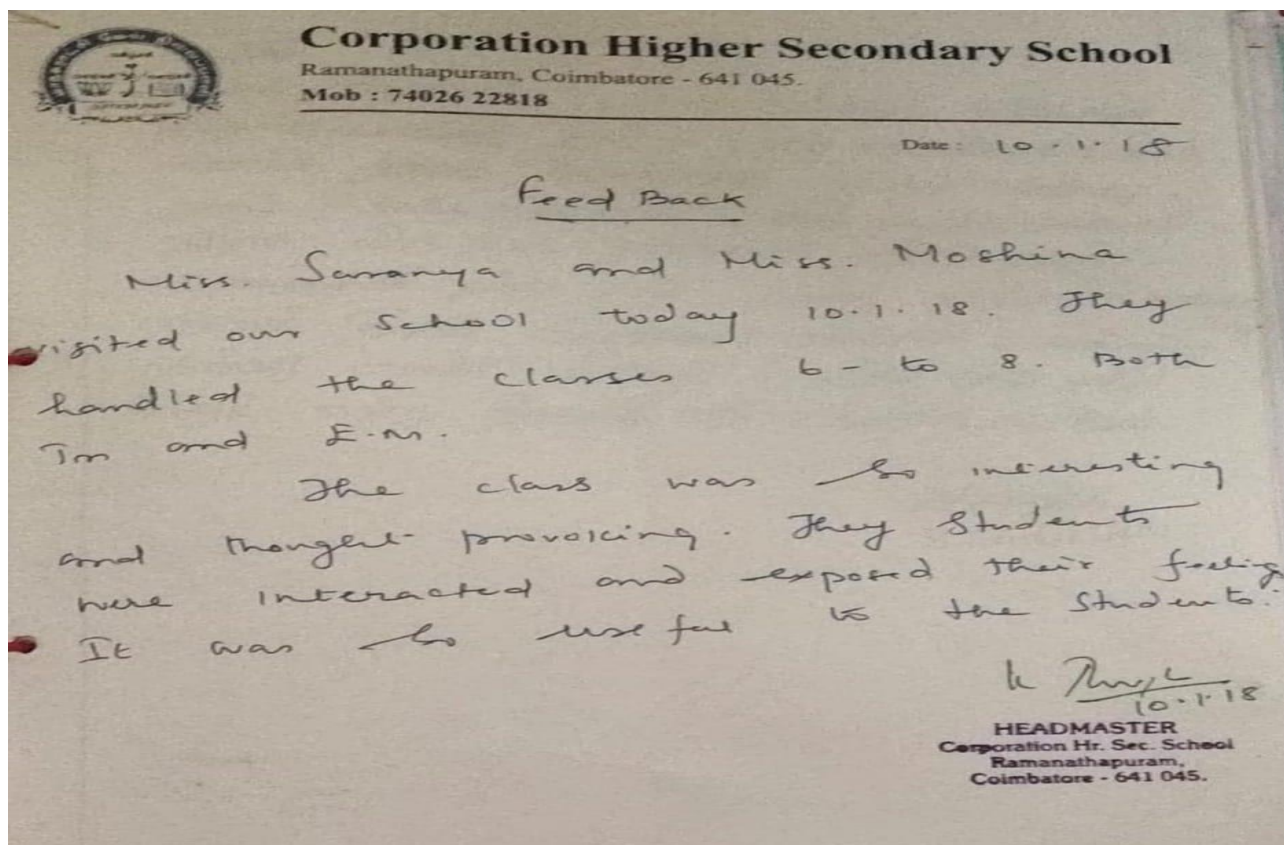 Corporation Higher Secondary School
Ramanathapuram, Coimbatore - 641 045.
Mob : 74026 22818
Date : 10 . 1 . 18
Feed Back
Miss. Saranya and Miss. Moshina
visited our School today 10.1.18. They
handled the classes 6 - to 8. Both
Tm and E.m.
The class was so interesting
and thought provoking. They Students
were interacted and exposed their feeling
It was so useful to the Students.
10.1.18
HEADMASTER
Corporation Hr. Sec. School
Ramanathapuram,
Coimbatore - 641 045.